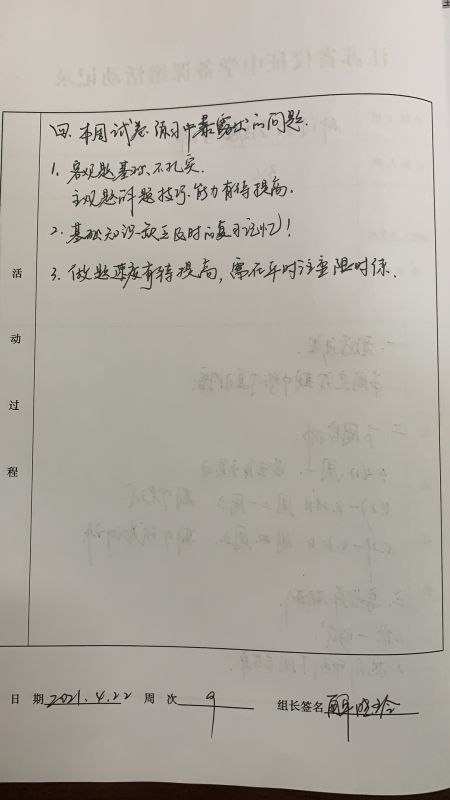 四、本周试卷、练习中暴露出的问题.
1. 客观题基础不扎实.
主观题解题技巧、能力有待提高.
2. 基础知识缺乏及时的复习记忆!
3. 做题速度有待提高, 需在平时注重限时练.
活
动
过
程
日 期 2021.4.22 周 次 9 组长签名